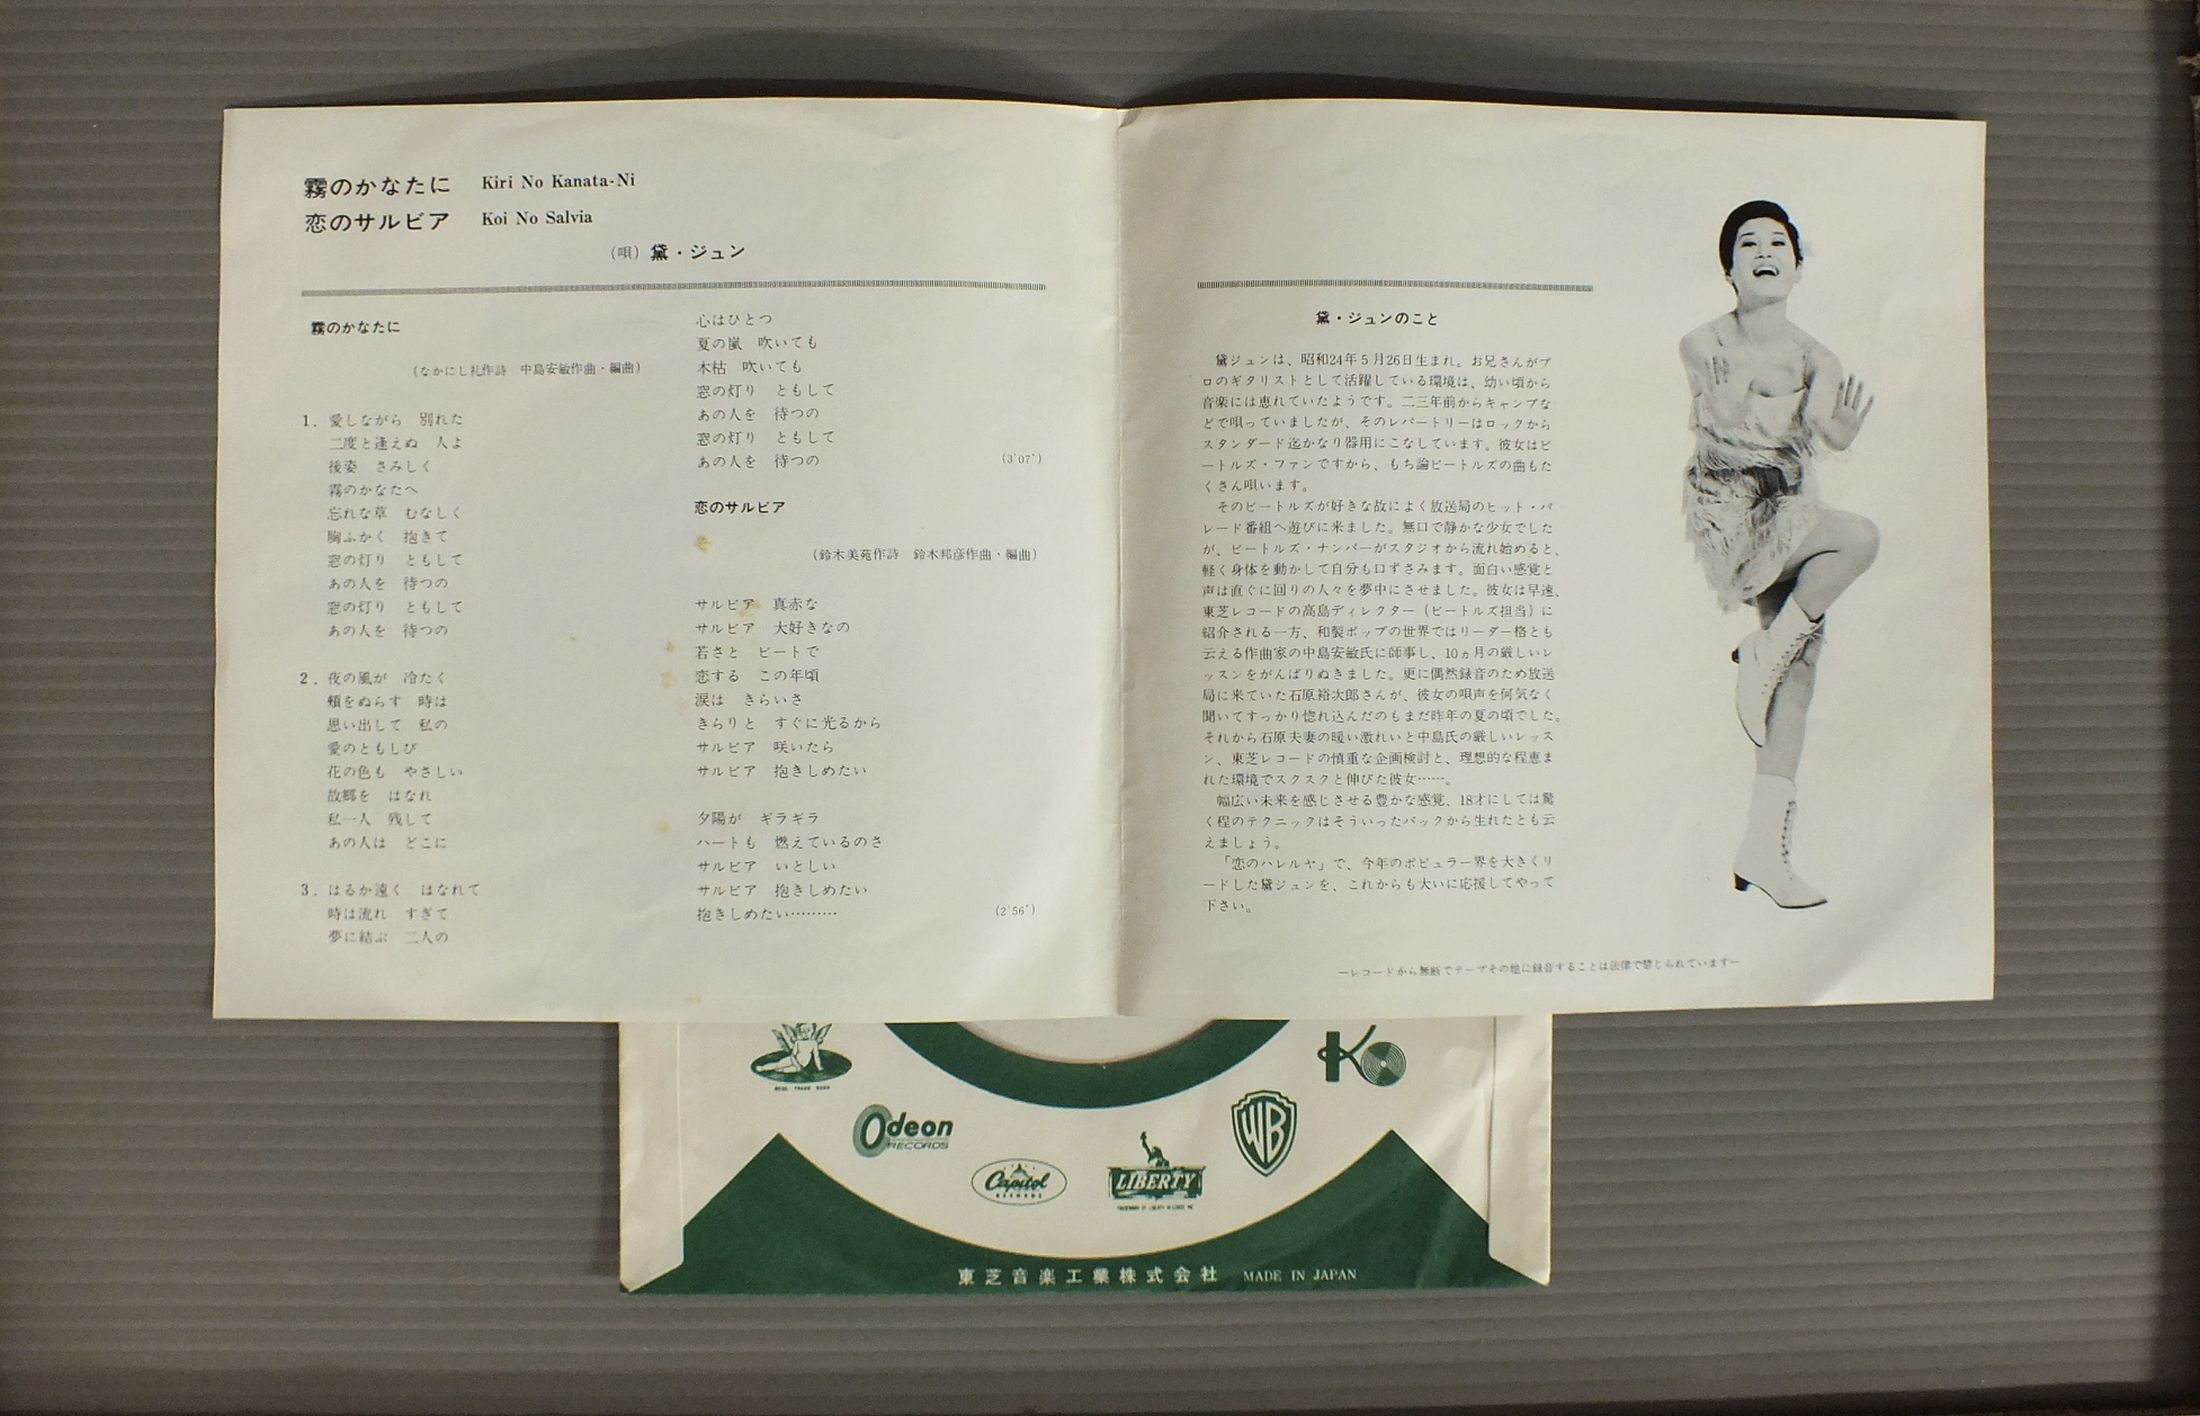 霧のかなたに　Kiri No Kanata-Ni
恋のサルビア　Koi No Salvia
（唄）黛・ジュン
霧のかなたに
（なかにし礼作詩　中島安敏作曲・編曲）
1．愛しながら　別れた
二度と逢えぬ　人よ
後姿　さみしく
霧のかなたへ
忘れな草　むなしく
胸ふかく　抱きて
窓の灯り　ともして
あの人を　待つの
窓の灯り　ともして
あの人を　待つの
2．夜の風が　冷たく
頬をぬらす　時は
思い出して　私の
愛のともしび
花の色も　やさしい
故郷を　はなれ
私一人　残して
あの人は　どこに
3．はるか遠く　はなれて
時は流れ　すぎて
夢に結ぶ　二人の
心はひとつ
夏の嵐　吹いても
木枯　吹いても
窓の灯り　ともして
あの人を　待つの
窓の灯り　ともして
あの人を　待つの
(3'07")
恋のサルビア
（鈴木美苑作詩　鈴木邦彦作曲・編曲）
サルビア　真赤な
サルビア　大好きなの
若さと　ビートで
恋する　この年頃
涙は　きらいさ
きらりと　すぐに光るから
サルビア　咲いたら
サルビア　抱きしめたい
夕陽が　ギラギラ
ハートも　燃えているのさ
サルビア　いとしい
サルビア　抱きしめたい
抱きしめたい………
(2'56")
黛・ジュンのこと
黛ジュンは、昭和24年5月26日生まれ。お兄さんがプ
ロのギタリストとして活躍している環境は、幼い頃から
音楽には恵れていたようです。二三年前からキャンプな
どで唄っていましたが、そのレパートリーはロックから
スタンダード迄かなり器用にこなしています。彼女はビ
ートルズ・ファンですから、もち論ビートルズの曲もた
くさん唄います。
そのビートルズが好きな故によく放送局のヒット・パ
レード番組へ遊びに来ました。無口で静かな少女でした
が、ビートルズ・ナンバーがスタジオから流れ始めると、
軽く身体を動かして自分も口ずさみます。面白い感覚と
声は直ぐに回りの人々を夢中にさせました。彼女は早速、
東芝レコードの高島ディレクター（ビートルズ担当）に
紹介される一方、和製ポップの世界ではリーダー格とも
云える作曲家の中島安敏氏に師事し、10ヵ月の厳しいレ
ッスンをがんばりぬきました。更に偶然録音のため放送
局に来ていた石原裕次郎さんが、彼女の唄声を何気なく
聞いてすっかり惚れ込んだのもまだ昨年の夏の頃でした。
それから石原夫妻の暖い激れいと中島氏の厳しいレッス
ン、東芝レコードの慎重な企画検討と、理想的な程恵ま
れた環境でスクスクと伸びた彼女……。
幅広い未来を感じさせる豊かな感覚、18才にしては驚
く程のテクニックはそういったバックから生れたとも云
えましょう。
「恋のハレルヤ」で、今年のポピュラー界を大きくリ
ードした黛ジュンを、これからも大いに応援してやって
下さい。
―レコードから無断でテープその他に録音することは法律で禁じられています―
Odeon
RECORDS
Capitol
RECORDS
LIBERTY
WB
K
東芝音楽工業株式会社　MADE IN JAPAN